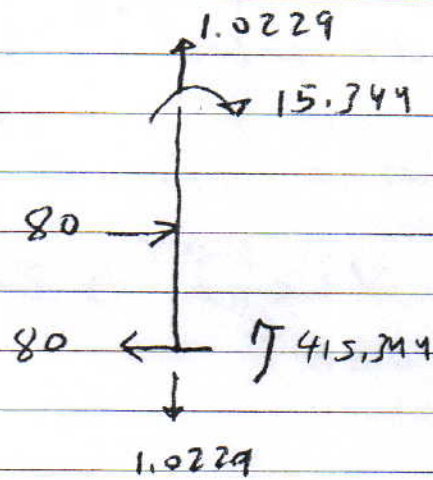 1.0229
15.344
80
80 415.344
1.0229